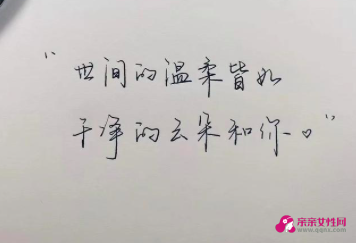 “世间的温柔皆如
干净的云朵和你。”
亲亲女性网